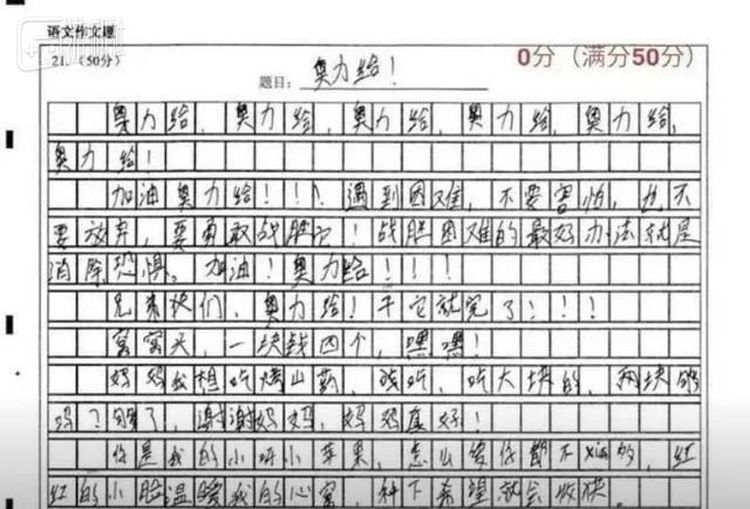 语文作文题
21.（50分）
0分（满分50分）
题目：奥力给！
奥力给，奥力给，奥力给，奥力给，奥力给，
奥力给！
加油奥力给！！！遇到困难，不要害怕，也不
要放弃，要勇敢战胜它！战胜困难的最好办法就是
消除恐惧。加油！奥力给！！！！
兄弟们，奥力给！干它就完了！！！
窝窝头，一块钱四个，嘿嘿！
妈妈我想吃烤山药，吃，吃大块的，两块够
吗？够了，谢谢妈妈，妈妈真好！
你是我的小呀小苹果，怎么爱你都不xian的，红
红的小脸温暖我的心窝，种下希望就会收获。